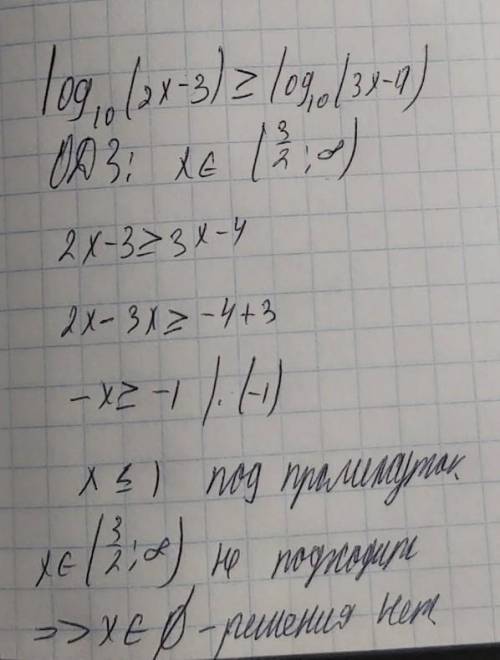 log₁₀(2x-3) ≥ log₁₀(3x-4)
ОДЗ: x∈ (3/2; ∞)
2x-3≥3x-4
2x-3x≥ -4+3
-x≥ -1 |·(-1)
x ≤ 1 под промежуток
x∈(3/2; ∞) не подходит
=> x∈ ∅ - решения нет